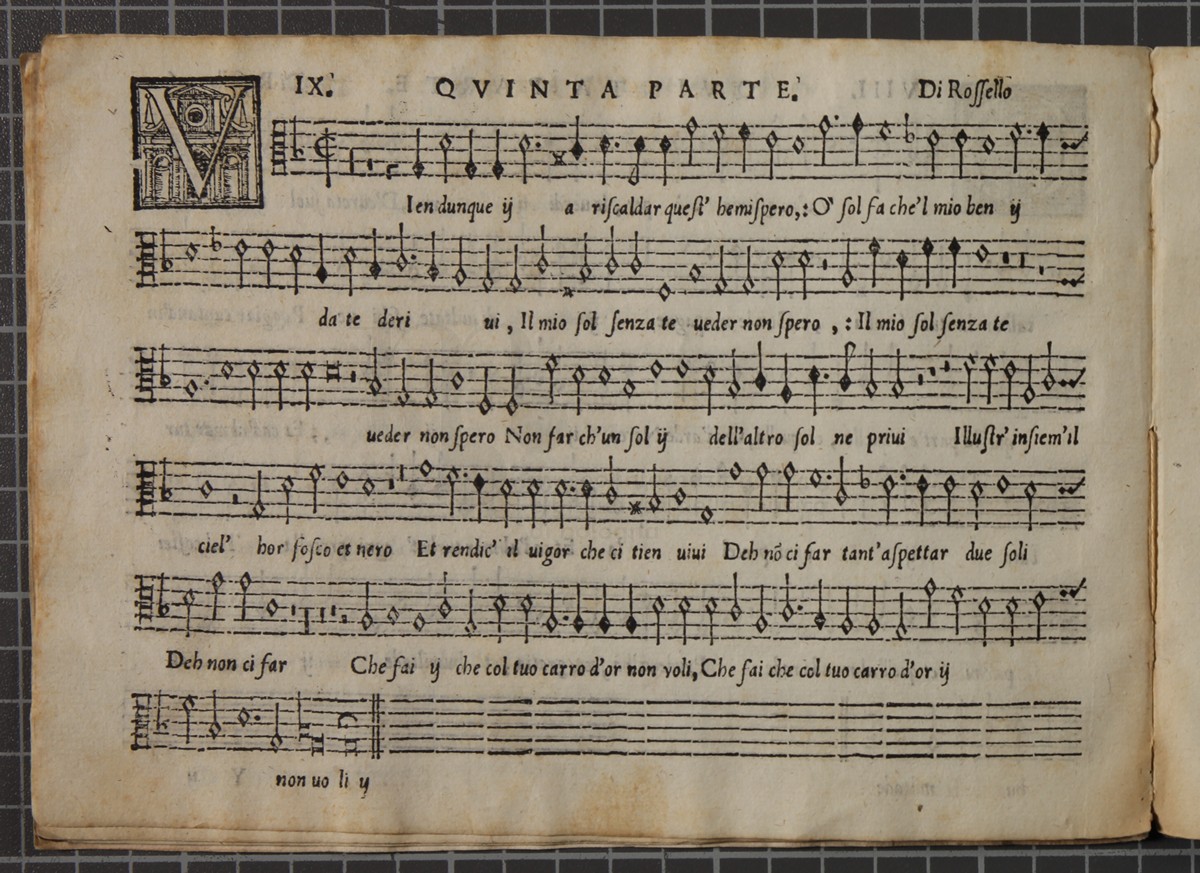 IX. QVINTA PARTE. Di Rossello
VIen dunque ij a riscaldar quest' hemispero,: O' sol fa che'l mio ben ij
da te deri ui, Il mio sol senza te ueder non spero ,: Il mio sol senza te
ueder non spero Non far ch'un sol ij dell'altro sol ne priui Illustr' insiem'il
ciel' hor fosco et nero Et rendic' il uigor che ci tien uiui Deh nõ ci far tant'aspettar due soli
Deh non ci far Che fai ij che col tuo carro d'or non voli, Che fai che col tuo carro d'or ij
non uo li ij